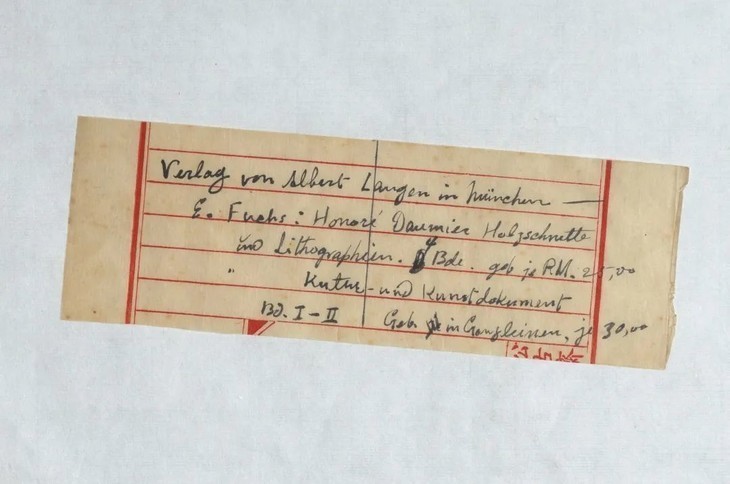 Verlag von Albert Langen in München —
E. Fuchs: Honoré Daumier Holzschnitte
und Lithographien. 4 Bde. geb je RM. 25,00
" Kultur- und Kunstdokument
Bd. I-II Geb. in Ganzleinen, je 30,00